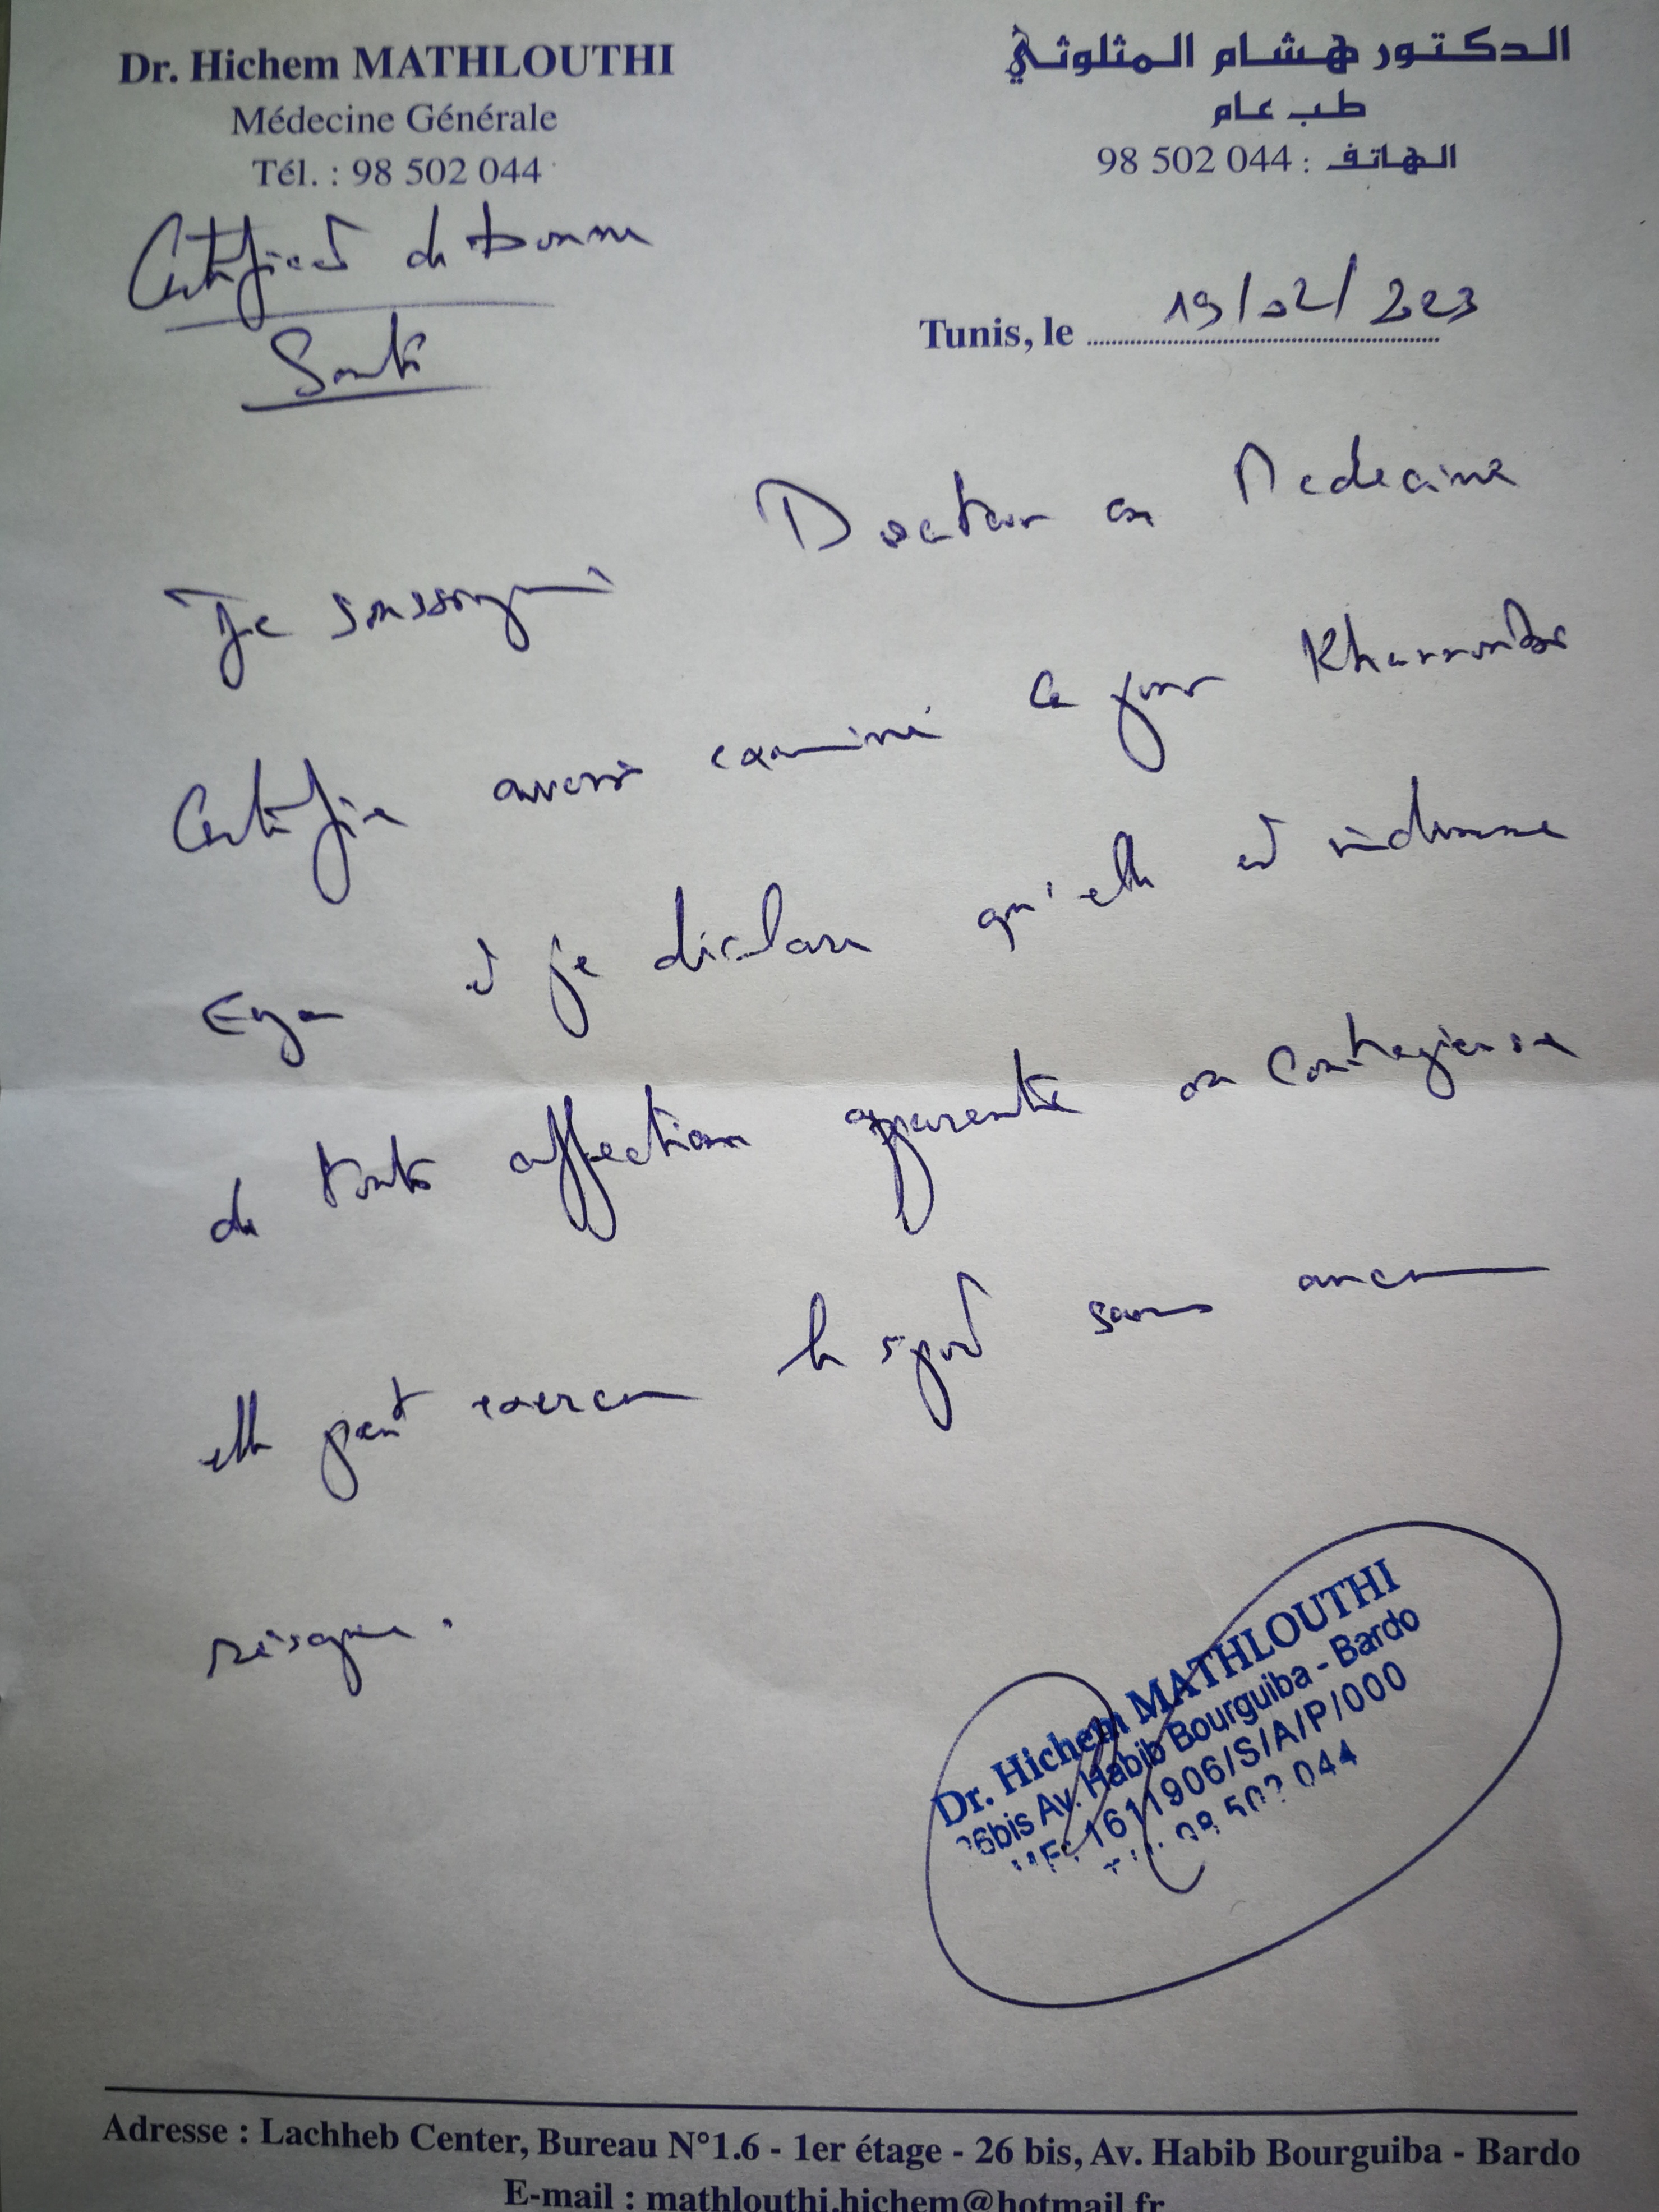 Dr. Hichem MATHLOUTHI
Médecine Générale
Tél. : 98 502 044
الدكتور هشام المثلوثي
طب عام
الهاتف : 98 502 044
Certificat de bonne
Santé
Tunis, le 19/02/2023
Je soussigné Docteur en Medecine
Certifie avoir examiné ce jour
Eya et je déclare qu'elle est indemne
de toute affection apparente ou contagieuse
elle peut exercer le sport sans aucun
risque.
Dr. Hichem MATHLOUTHI
26bis Av. Habib Bourguiba - Bardo
MF: 1611906/S/A/P/000
Tél.: 98 502 044
Adresse : Lachheb Center, Bureau N°1.6 - 1er étage - 26 bis, Av. Habib Bourguiba - Bardo
E-mail : mathlouthi.hichem@hotmail.fr